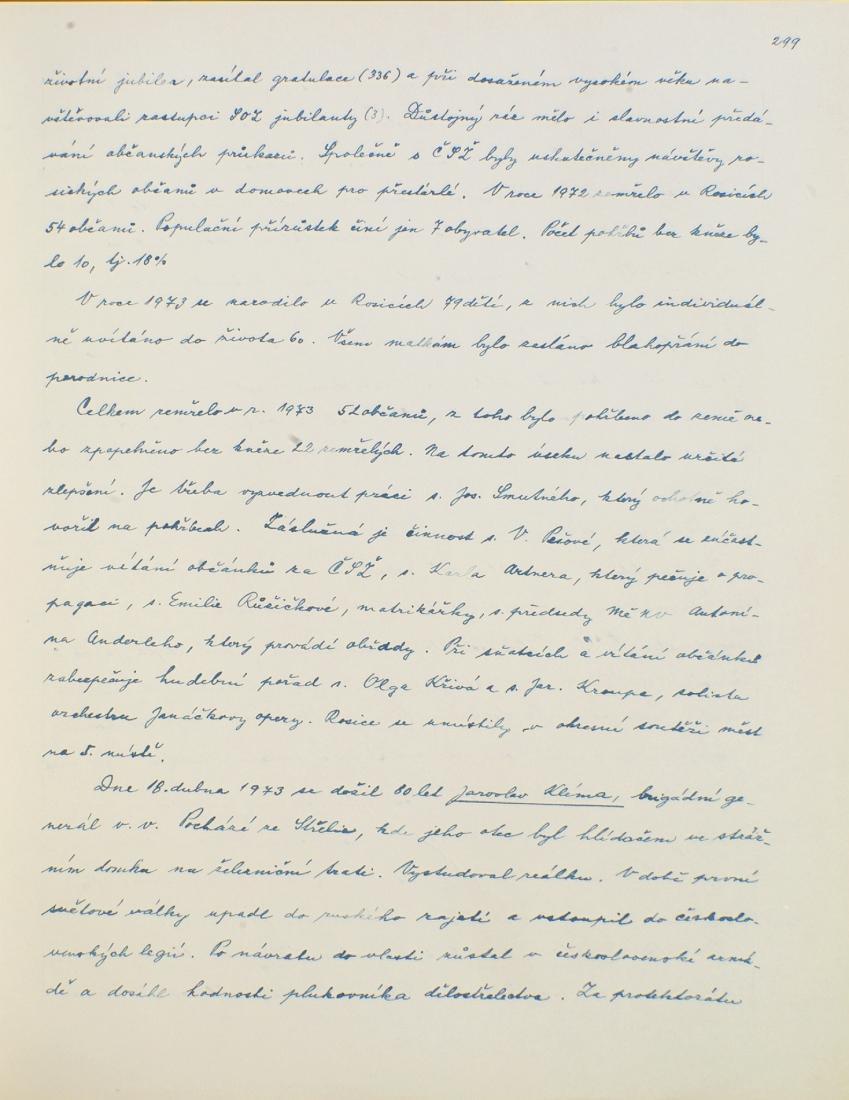 299
životní jubilea, zasílal gratulace (336) a při dosaženém vysokém věku na-
vštěvovali zástupci SOZ jubilanty (3). Důstojný ráz mělo i slavnostní předá-
vání občanských průkazů. Společně s ČSŽ byly uskutečněny návštěvy ro-
sických občanů v domovech pro přestárlé. V roce 1972 zemřelo v Rosicích
54 občanů. Populační přírůstek činí jen 7 obyvatel. Počet pohřbů bez kněze by-
lo 10, tj. 18%
V roce 1973 se narodilo v Rosicích 79 dětí, z nich bylo individuál-
ně uvítáno do života 60. Všem matkám bylo zasláno blahopřání do
porodnice.
Celkem zemřelo v r. 1973 52 občanů, z toho bylo pohřbeno do země ne-
bo zpopelněno bez kněze 22 zemřelých. Na tomto úseku nastalo určité
zlepšení. Je třeba vyzvednout práci s. Jos. Smutného, který ochotně ho-
vořil na pohřbech. Záslužná je činnost s. V. Pešové, která se zúčast-
ňuje vítání občánků za ČSŽ, s. Karla Artnera, který pečuje o pro-
pagaci, s. Emilie Růžičkové, matrikářky, s. předsedy MěNV Antoní-
na Anderleho, který provádí obřady. Při sňatcích a vítání občánků
zabezpečuje hudební pořad s. Olga Křivá a s. Jar. Kroupa, solista
orchestru Janáčkovy opery. Rosice se umístily v okresní soutěži měst
na 5. místě.
Dne 18. dubna 1973 se dožil 80 let Jaroslav Klíma, brigádní ge-
nerál v. v. Pochází ze Střelic, kde jeho otec byl hlídačem ve stráž-
ním domku na železniční trati. Vystudoval reálku. V době první
světové války upadl do ruského zajetí a vstoupil do českoslo-
venských legií. Po návratu do vlasti zůstal v československé armá-
dě a dosáhl hodnosti plukovníka dělostřelectva. Za protektorátu